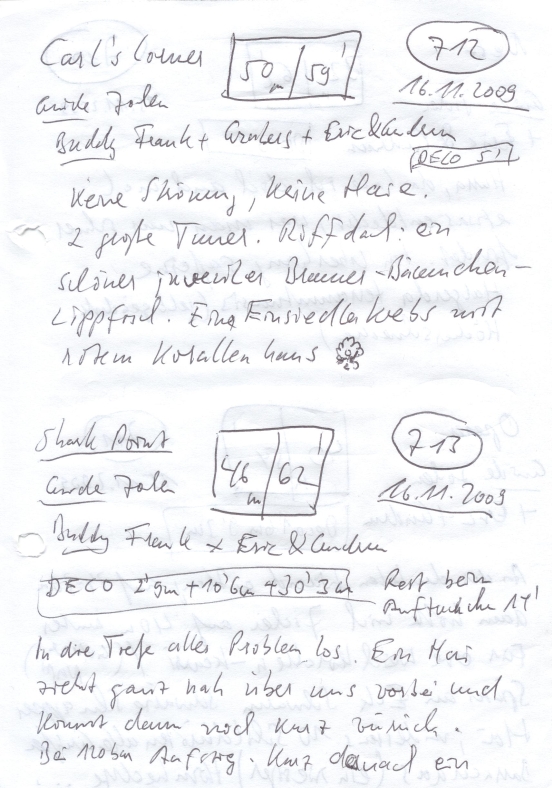 Carl's Corner
50 m / 59'
712
16.11.2009
Guide Jolen
Buddy Frank + + Eric &
DECO 5'
Keine Strömung, keine Haie.
2 große Tuner. Riffdach: ein
schöner juveniler Bäumchen-
Lippfisch. Eine Einsiedlerkrebs mit
rotem Korallenhaus
Shark Point
46 m / 62'
713
16.11.2009
Guide Jolen
Buddy Frank + Eric &
DECO 2'9m + 10'6m + 30'3m
Rest beim
Auftauchen 14'
In die Tiefe alles Problem los. Ein Hai
zieht ganz nah über uns vorbei und
kommt dann noch kurz zurück.
Bei 120bar Aufstieg. Kurz danach ein